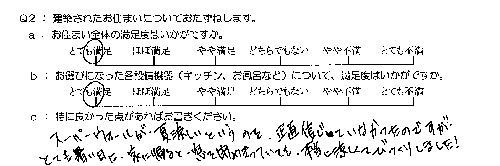 Q2：建築されたお住まいについておたずねします。
a：お住まい全体の満足度はいかがですか。
とても満足 ほぼ満足 やや満足 どちらでもない やや不満 とても不満
b：お選びになった各設備機器（キッチン、お風呂など）について、満足度はいかがですか。
とても満足 ほぼ満足 やや満足 どちらでもない やや不満 とても不満
c：特に良かった点があればお書きください。
スーパーウォールが夏涼しいというのを、正直信じていなかったのですが
とても暑い日に、家に帰ると、窓を閉め切っていても、涼しくてびっくりしました！